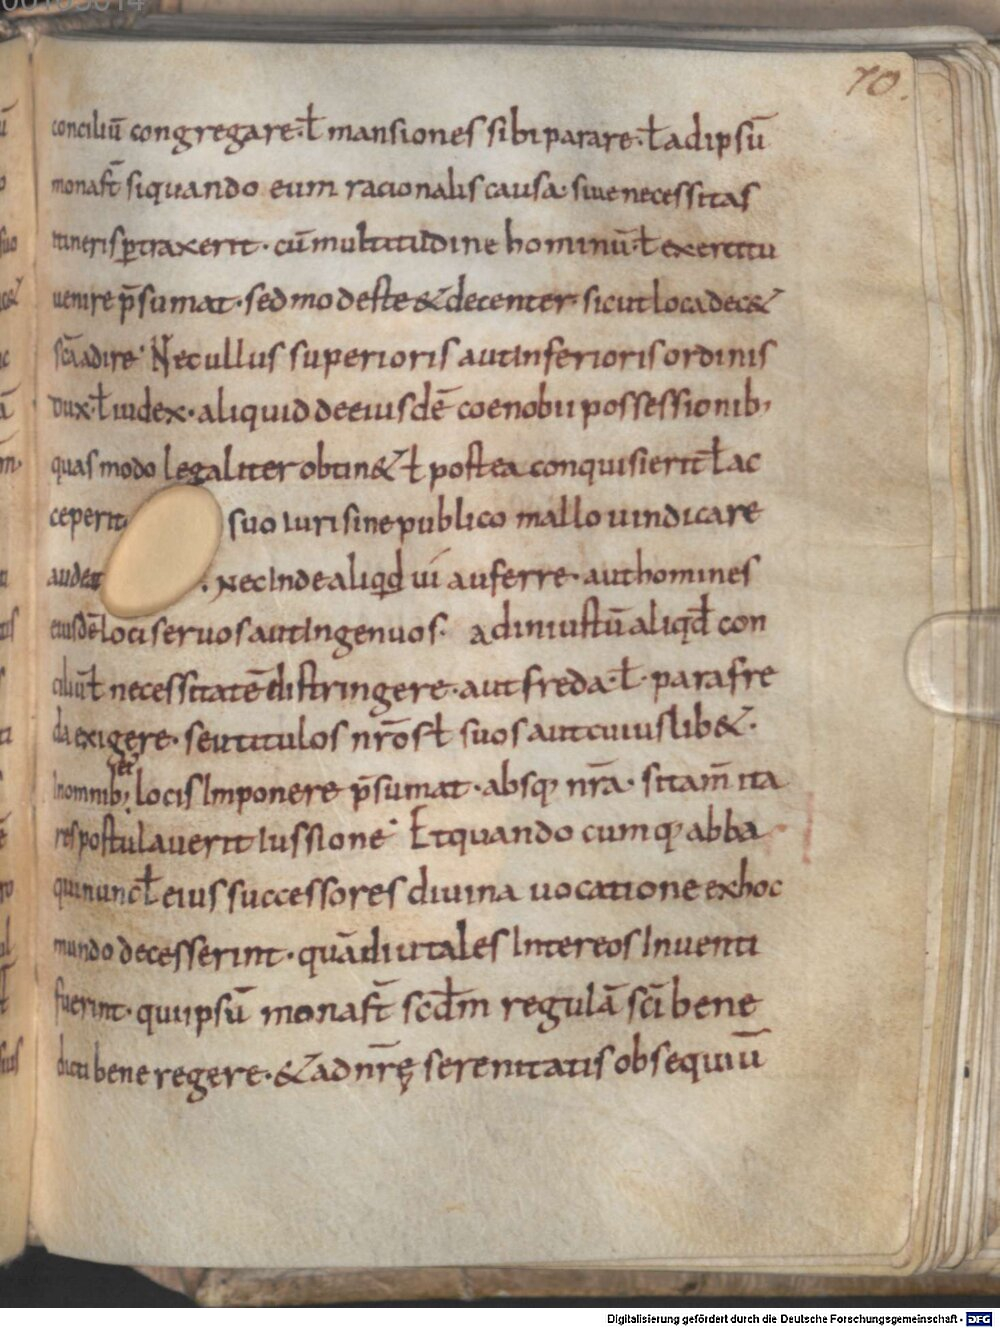 70.
conciliū congregare· ł mansiones sibi parare· ł ad ipsū
monast̄ si quando eum racionalis causa· siue necessitas
itineris ꝑtraxerit· cū multitudine hominū· ł exercitu
uenire p̄sumat· sed modeste & decenter sicut loca dec&
sc̄a adire· Nec ullus superioris aut inferioris ordinis
dux· ł iudex· aliquid de eiusdē coenobii possessionib;
quas modo legaliter obtin& ł postea conquisierit ł ac
ceperit suo iuri sine publico mallo uindicare
audeat· Nec inde aliqd ui auferre· aut homines
eiusdē loci seruos aut ingenuos· ad iniustū aliqđ con
ciliū ł necessitatē distringere· aut freda· ł· parafre
da exigere· seu titulos nr̄os ł suos aut cuiuslib&·
In omnib; et locis imponere p̄sumat· absq; nr̄a· si tam̄ ita
res postulauerit iussione· Et quandocumq; abba
qui nunc ł eius successores diuina uocatione ex hoc
mundo decesserint· quādiu tales inter eos inuenti
fuerint· qui ipsū monast̄ scdm̄ regulā sc̄i bene
dicti bene regere· & ad nr̄ę serenitatis obsequiū
Digitalisierung gefördert durch die Deutsche Forschungsgemeinschaft - DFG